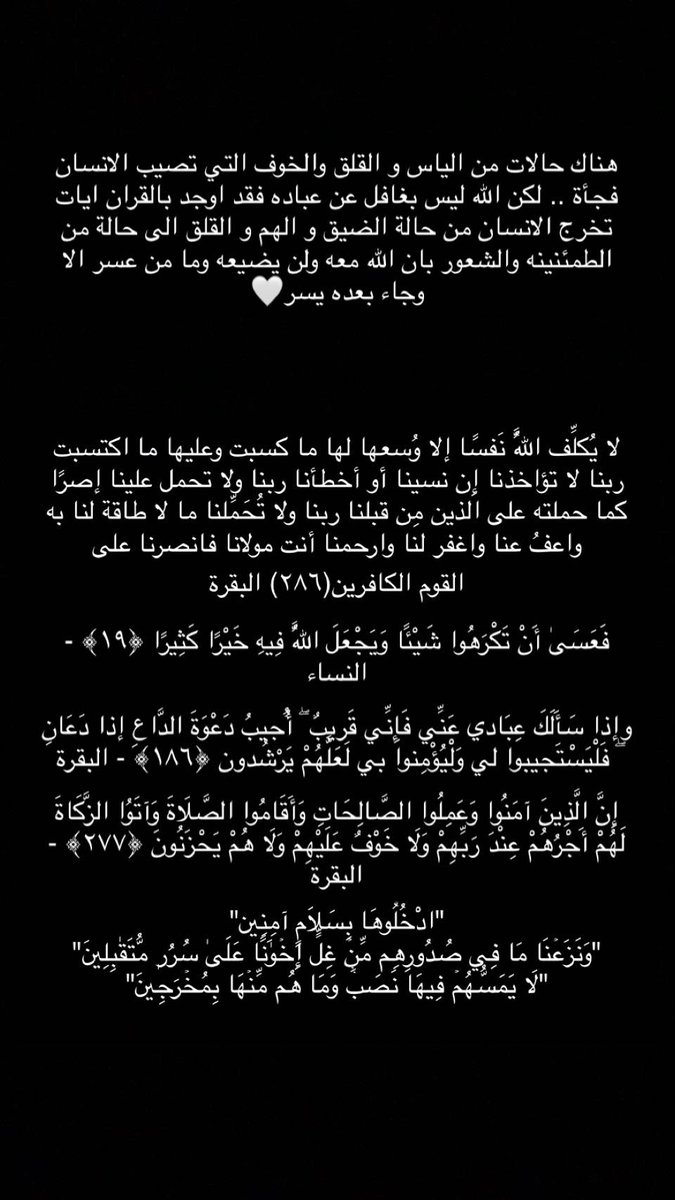 هناك حالات من الياس و القلق والخوف التي تصيب الانسان
فجأة .. لكن الله ليس بغافل عن عباده فقد اوجد بالقران ايات
تخرج الانسان من حالة الضيق و الهم و القلق الى حالة من
الطمئنينه والشعور بان الله معه ولن يضيعه وما من عسر الا
وجاء بعده يسر🤍
لا يُكلِّف اللهُ نَفسًا إلا وُسعها لها ما كسبت وعليها ما اكتسبت
ربنا لا تؤاخذنا إن نسينا أو أخطأنا ربنا ولا تحمل علينا إصرًا
كما حملته على الذين مِن قبلنا ربنا ولا تُحَمِّلنا ما لا طاقة لنا به
واعفُ عنا واغفر لنا وارحمنا أنت مولانا فانصرنا على
القوم الكافرين(٢٨٦) البقرة
فَعَسَىٰ أَنْ تَكْرَهُوا شَيْئًا وَيَجْعَلَ اللهُ فِيهِ خَيْرًا كَثِيرًا ﴿١٩﴾ -
النساء
وإذا سَأَلَكَ عِبَادي عَنِّي فَإِنِّي قَرِيبٌ ۖ أُجيبُ دَعْوَةَ الدَّاعِ إذا دَعَانِ
ۖ فَلْيَسْتَجيبوا لي وَلْيُؤْمِنوا بي لَعَلَّهُمْ يَرْشُدون ﴿١٨٦﴾ - البقرة
إِنَّ الَّذِينَ آمَنُوا وَعَمِلُوا الصَّالِحَاتِ وَأَقَامُوا الصَّلَاةَ وَآتَوُا الزَّكَاةَ
لَهُمْ أَجْرُهُمْ عِنْدَ رَبِّهِمْ وَلَا خَوْفٌ عَلَيْهِمْ وَلَا هُمْ يَحْزَنُونَ ﴿٢٧٧﴾ -
البقرة
"ادْخُلُوهَا بِسَلَامٍ آمِنِين"
"وَنَزَعْنَا مَا فِي صُدُورِهِم مِّنْ غِلٍّ إِخْوَٰنًا عَلَىٰ سُرُرٍ مُّتَقَٰبِلِينَ"
"لَا يَمَسُّهُمْ فِيهَا نَصَبٌ وَمَا هُم مِّنْهَا بِمُخْرَجِينَ"